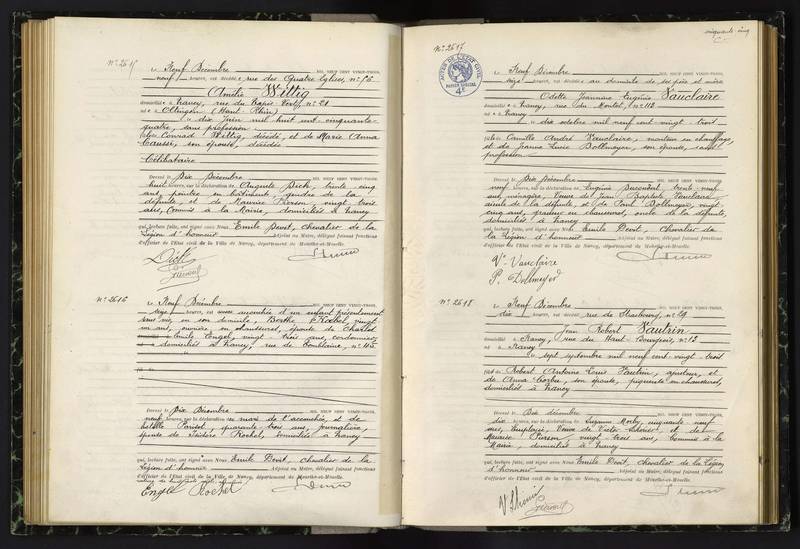 N° 2615
Le Neuf Décembre MIL NEUF CENT VINGT-TROIS,
neuf heures, est décédée rue des Quatre Eglises, n° 56
Amélie Wittig
domiciliée à Nancy, rue du Tapis Vert, n° 21
née à (Haut Rhin)
dix Juin mil huit cent cinquante
quatre, sans profession
fille Conrad Wittig, décédé, et de Marie Anna
son épouse, décédée
Célibataire
Dressé le Dix Décembre MIL NEUF CENT VINGT-TROIS,
huit heures, sur la déclaration de Auguste Dick, trente cinq
ans, peintre en bâtiments, gendre de la
défunte, et de Maurice Pierson vingt trois
ans, commis à la Mairie, domiciliés à Nancy
qui, lecture faite, ont signé avec Nous Emile Devit, chevalier de la
Légion d'honneur Adjoint au Maire, délégué faisant fonctions
d'officier de l'État civil de la Ville de Nancy, département de Meurthe-et-Moselle.
Dick
N° 2616
Le Neuf Décembre MIL NEUF CENT VINGT-TROIS,
heures, est accouchée d'un enfant présentement
sans vie, en son domicile, Berthe Rochel, vingt
un ans, ouvrière en chaussures, épouse de Charles
Emile Engel, vingt trois ans, cordonnier,
domiciliés à Nancy, rue de n° 115
Dressé le Dix Décembre MIL NEUF CENT VINGT-TROIS,
neuf heures, sur la déclaration du mari de l'accouchée, et de
quarante trois ans, journalière,
épouse de Isidore Rochel, domiciliés à Nancy
qui, lecture faite, ont signé avec Nous Emile Devit, chevalier de la
Légion d'honneur Adjoint au Maire, délégué faisant fonctions
d'officier de l'État civil de la Ville de Nancy, département de Meurthe-et-Moselle.
Engel Rochel
cinquante cinq
N° 2617
Le Neuf Décembre MIL NEUF CENT VINGT-TROIS,
seize heures, est décédée au domicile de ses père et mère
Odette Jeannine Eugénie Vauclaire
domiciliée à Nancy, rue du Montet, n° 112
née à Nancy
dix octobre mil neuf cent vingt trois
fille de Camille André Vauclaire, monteur en chauffage,
et de Jeanne Lucie Bollmeyer, son épouse, sans
profession
Dressé le Dix Décembre MIL NEUF CENT VINGT-TROIS,
neuf heures, sur la déclaration de Eugénie trente neuf
ans, ménagère, veuve de Jean Baptiste Vauclaire,
de la défunte, et de Paul Bollmeyer, vingt
cinq ans, en chaussures, oncle de la défunte,
domiciliés à Nancy
qui, lecture faite, ont signé avec Nous Emile Devit, chevalier de
la Légion d'honneur Adjoint au Maire, délégué faisant fonctions
d'officier de l'État civil de la Ville de Nancy, département de Meurthe-et-Moselle.
Ve Vauclaire
P. Bollmeyer
N° 2618
Le Neuf Décembre MIL NEUF CENT VINGT-TROIS,
dix heures, est décédé rue de Strasbourg, n° 29
Jean Robert Vautrin
domicilié à Nancy, rue du Haut Bourgeois, n° 12
né à Nancy
sept septembre mil neuf cent vingt trois
fils de Robert Antoine Louis Vautrin, ajusteur, et
de Anna son épouse, piqueuse en chaussures,
domiciliés à Nancy
Dressé le Dix décembre MIL NEUF CENT VINGT-TROIS,
dix heures, sur la déclaration de Suzanne cinquante neuf
ans, employée, et de
Maurice Pierson, vingt trois ans, commis à la
Mairie, domiciliés à Nancy
qui, lecture faite, ont signé avec Nous Emile Devit, chevalier de la Légion
d'honneur Adjoint au Maire, délégué faisant fonctions
d'officier de l'État civil de la Ville de Nancy, département de Meurthe-et-Moselle.